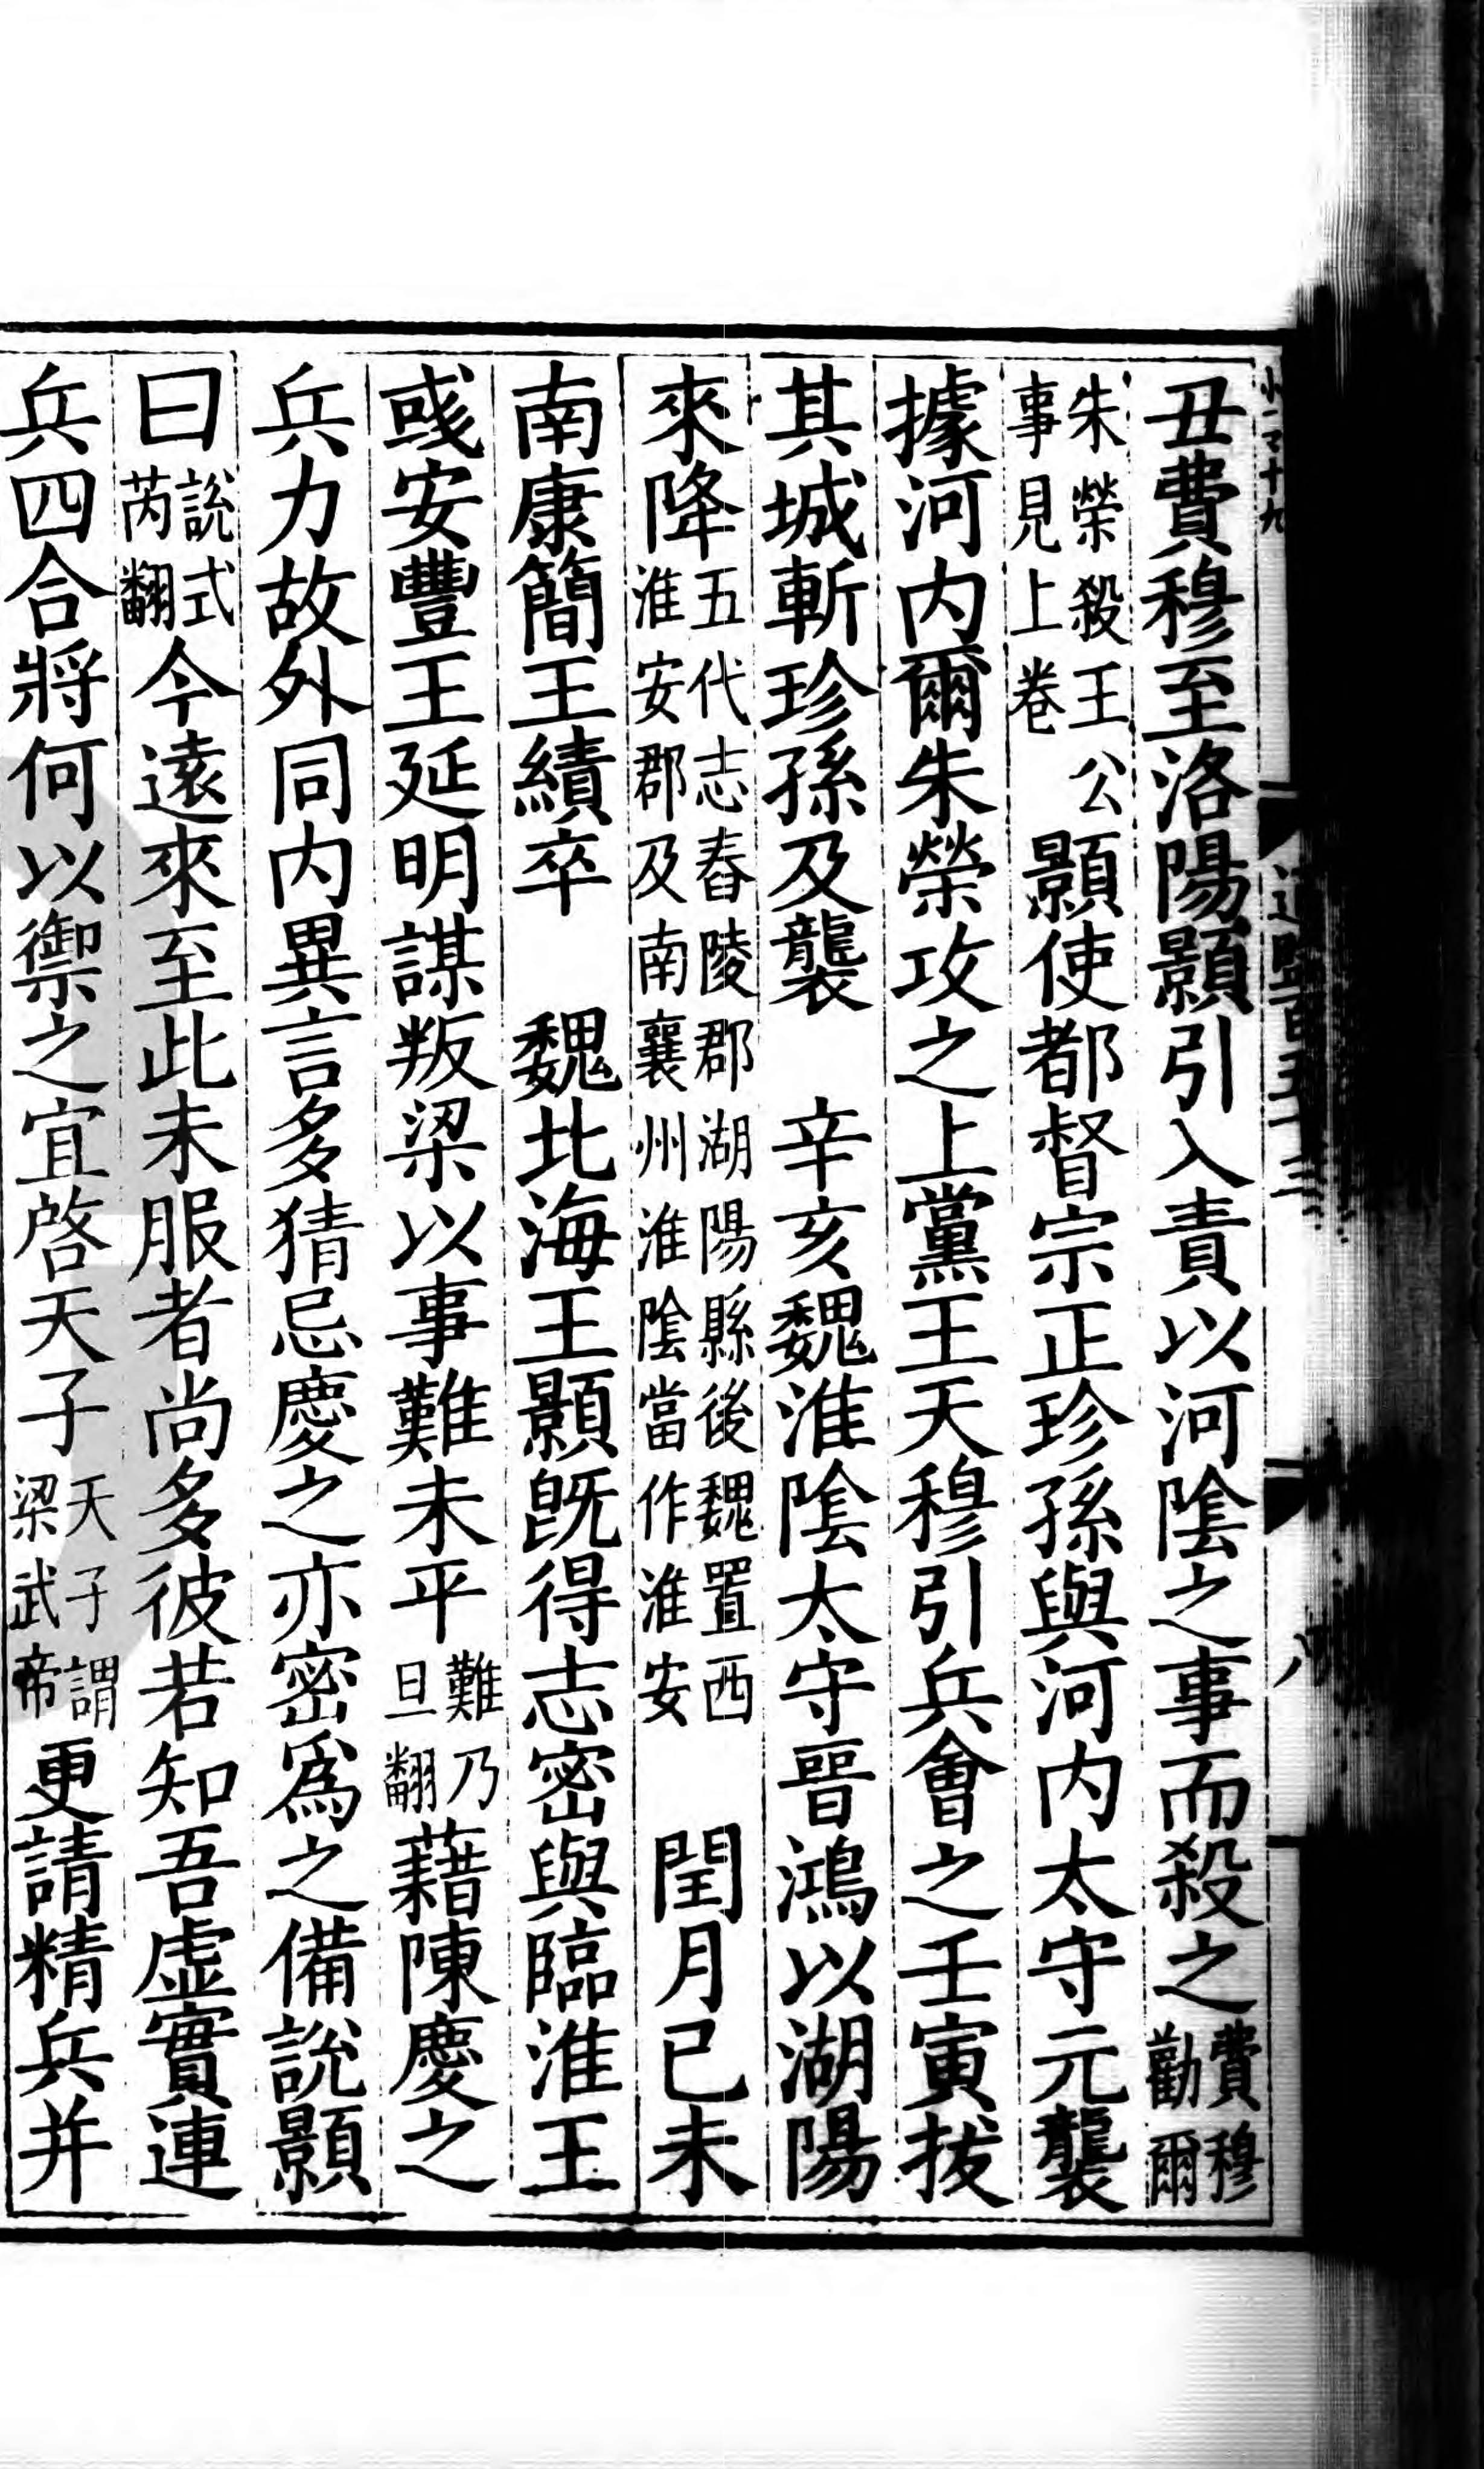 丑費穆至洛陽顥引入責以河陰之事而殺之費穆勸爾
朱榮殺王公事見上卷顥使都督宗正珍孫與河内太守元襲
據河内爾朱榮攻之上黨王天穆引兵會之壬寅拔
其城斬珍孫及襲 辛亥魏淮陰太守晉鴻以湖陽
來降五代志舂陵郡湖陽縣後魏置西淮安郡及南襄州淮陰當作淮安 閏月已未
南康簡王績卒 魏北海王顥旣得志密與臨淮王
彧安豐王延明謀叛梁以事難未平難乃旦翻藉陳慶之
兵力故外同内異言多猜忌慶之亦密爲之備說顥
曰說式芮翻今遠來至此未服者尚多彼若知吾虛實連
兵四合將何以禦之宜啓天子天子謂梁武帝更請精兵并